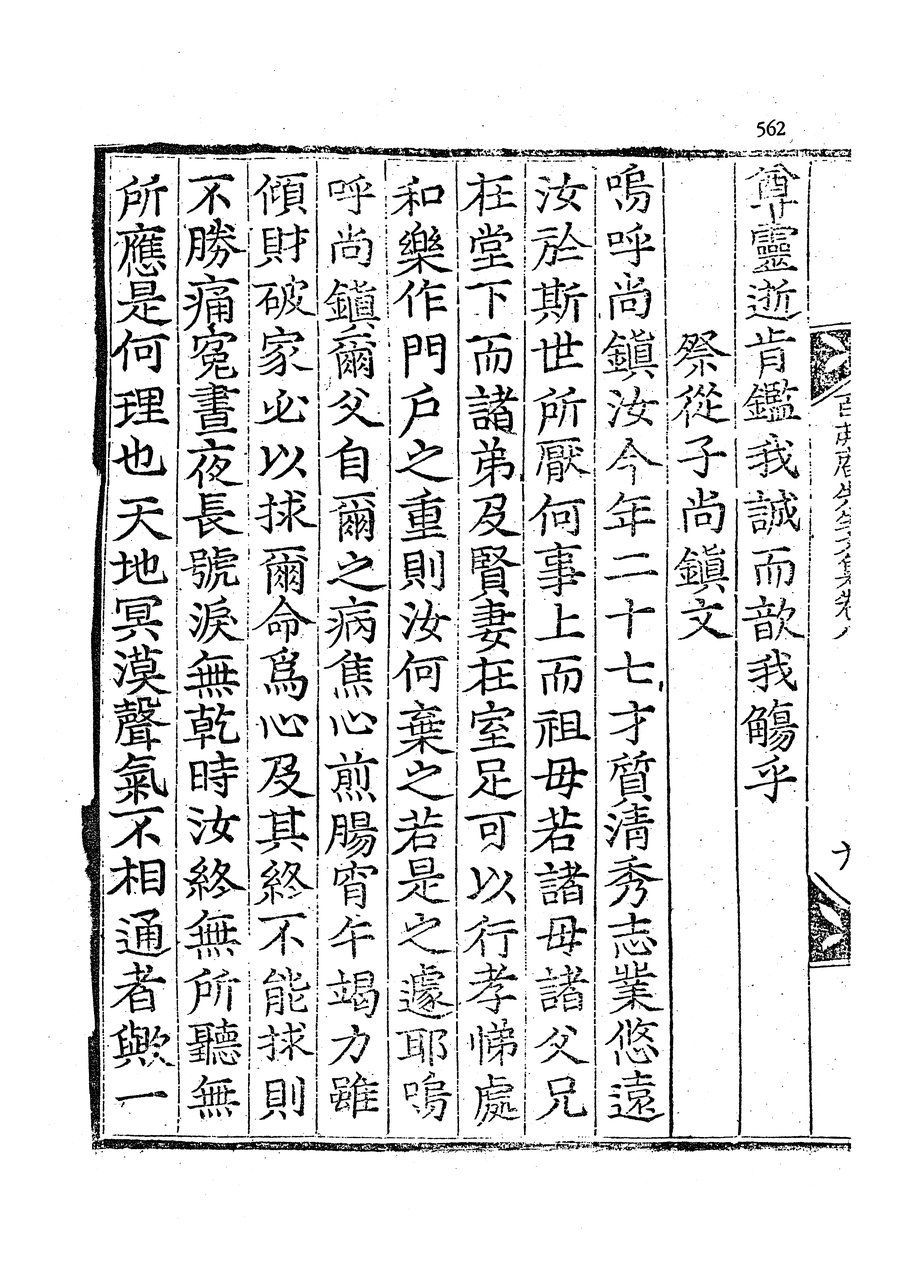 562
尊靈逝肯鑑我誠而歆我觴乎
祭從子尚鎭文
嗚呼尚鎭汝今年二十七才質清秀志業悠遠
汝於斯世所厭何事上而祖母若諸母諸父兄
在堂下而諸弟及賢妻在室足可以行孝悌處
和樂作門戶之重則汝何棄之若是之遽耶嗚
呼尚鎭爾父自爾之病焦心煎腸宵午竭力雖
傾財破家必以救爾命爲心及其終不能救則
不勝痛寃晝夜長號淚無乾時汝終無所聽無
所應是何理也天地冥漠聲氣不相通者歟一